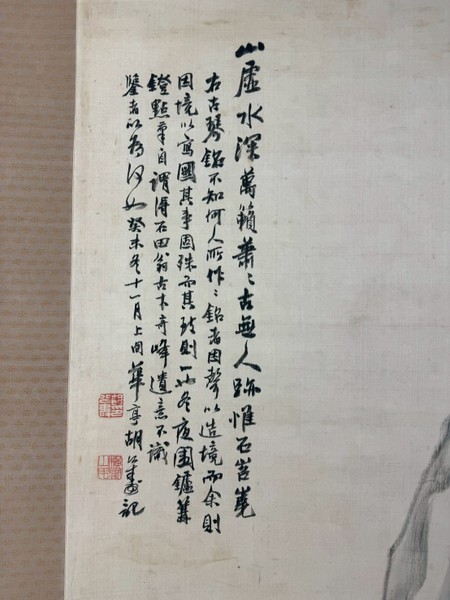 山虛水深萬籟蕭〻古無人跡惟石岧嶤
右古琴銘不知何人所作〻銘者因聲以造境而余則
因境以寫圖其事固殊而其致則一也冬夜圍鑪篝
鐙點筆自謂得石田翁古木奇峰遺意不識
鑒者以為何如癸未冬十一月上旬華亭胡公壽記